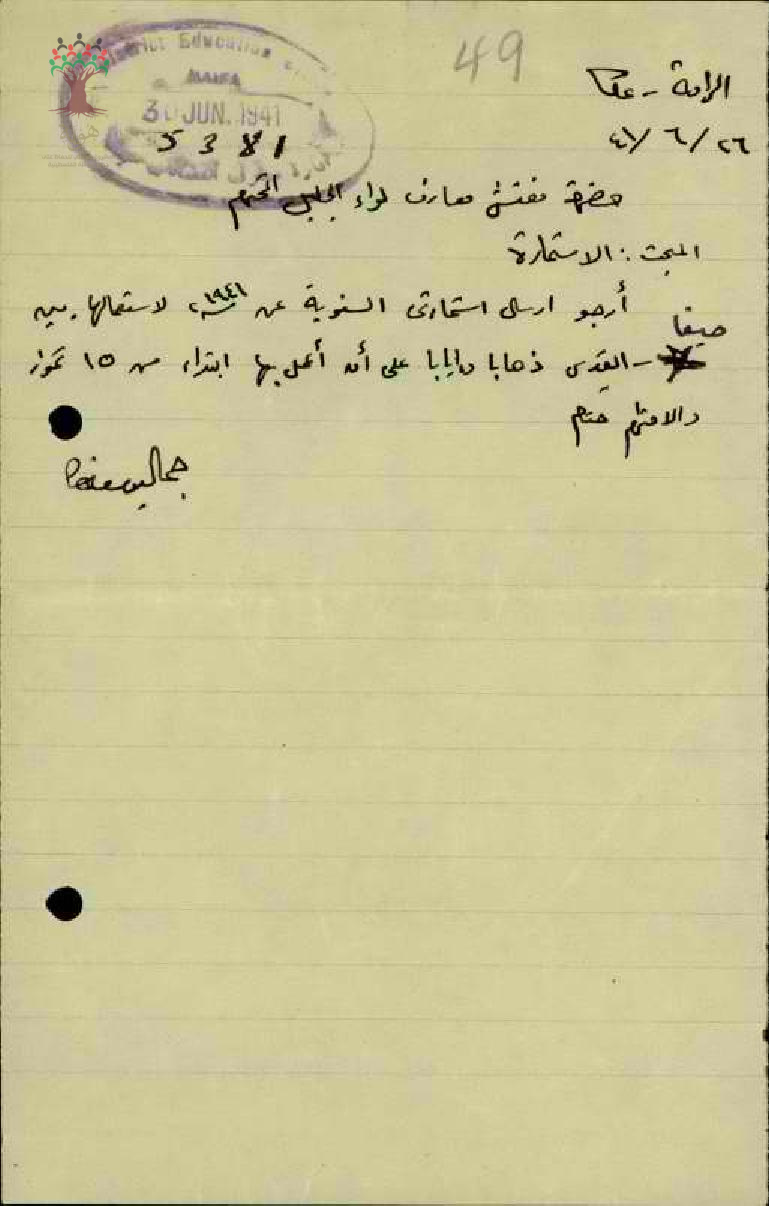 49
District Education
HAIFA
30 JUN. 1941
5381
الرامة - عكا
٢٦/٦/٤١
حضرة مفتش معارف لواء الجليل المحترم
المبحث: الاستمارة
أرجو ارسال استمارتي السنوية عن سنة ١٩٤١ لاستعمالها بين
حيفا - القدس ذهابا وايابا على أن أعمل بها ابتداء من ١٥ تموز
والاحترام ختام
جمال